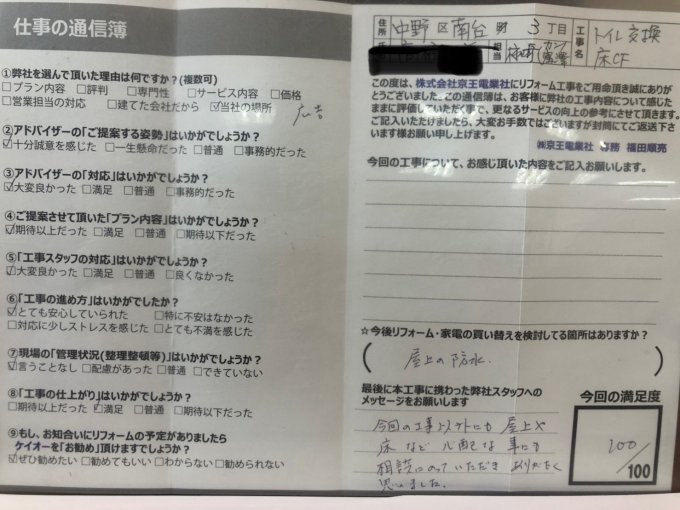 仕事の通信簿
①弊社を選んで頂いた理由は何ですか?(複数可)
□プラン内容 □評判 □専門性 □サービス内容 □価格
□営業担当の対応 □建てた会社だから ☑当社の場所
広告
②アドバイザーの「ご提案する姿勢」はいかがでしょうか?
☑十分誠意を感じた □一生懸命だった □普通 □事務的だった
③アドバイザーの「対応」はいかがでしょうか?
☑大変良かった □満足 □普通 □事務的だった
④ご提案させて頂いた「プラン内容」はいかがでしょうか?
☑期待以上だった □満足 □普通 □期待以下だった
⑤「工事スタッフの対応」はいかがでしょうか?
☑大変良かった □満足 □普通 □良くなかった
⑥「工事の進め方」はいかがでしたか?
☑とても安心していられた □特に不安はなかった
□対応に少しストレスを感じた □とても不満を感じた
⑦現場の「管理状況(整理整頓等)」はいかがでしょうか?
☑言うことなし □配慮があった □普通 □できていない
⑧「工事の仕上がり」はいかがでしょうか?
□期待以上だった ☑満足 □普通 □期待以下だった
⑨もし、お知合いにリフォームの予定がありましたら
ケイオーを「お勧め」頂けますでしょうか?
☑ぜひ勧めたい □勧めてもいい □わからない □勧められない
住所 中野区南台 3丁目
担当
工事名 トイレ交換
床CF
この度は、株式会社京王電業社にリフォーム工事をご用命頂き誠にありが
とうございました。この通信簿は、お客様に弊社の工事内容について感じた
ままに評価していただく事で、更なるサービスの向上の参考にさせて頂きます。
ご記入いただけましたら、大変お手数ではございますが封筒にてご返送下さ
います様お願い申し上げます。
㈱京王電業社 専務 福田順亮
今回の工事について、お感じ頂いた内容をご記入お願いします。
☆今後リフォーム・家電の買い替えを検討してる箇所はありますか?
(屋上の防水.)
最後に本工事に携わった弊社スタッフへの
メッセージをお願いします
今回の工事以外にも 屋上や
床など 心配な 事にも
相談にのっていただき ありがたく
思いました。
今回の満足度
100/100